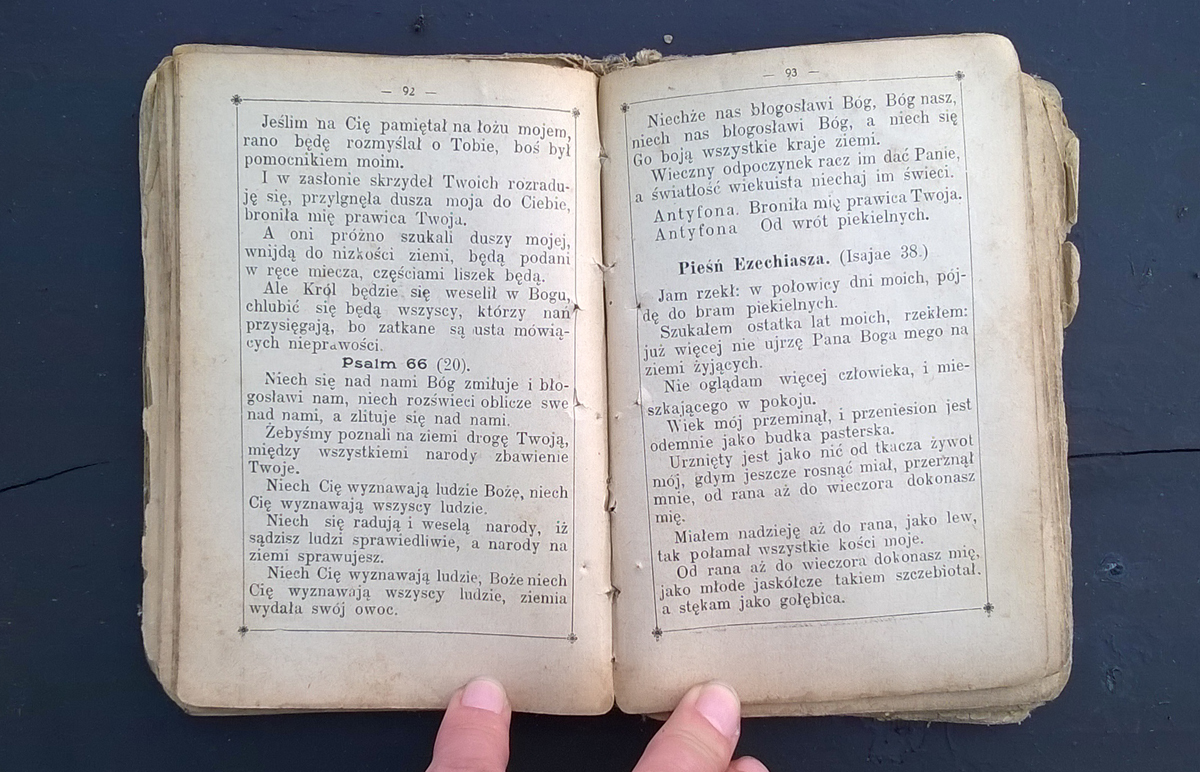 — 92 —
Jeślim na Cię pamiętał na łożu mojem,
rano będę rozmyślał o Tobie, boś był
pomocnikiem moim.
I w zasłonie skrzydeł Twoich rozradu-
ję się, przylgnęła dusza moja do Ciebie,
broniła mię prawica Twoja.
A oni próżno szukali duszy mojej,
wnijdą do nizkości ziemi, będą podani
w ręce miecza, częściami liszek będą.
Ale Król będzie się weselił w Bogu,
chlubić się będą wszyscy, którzy nań
przysięgają, bo zatkane są usta mówią-
cych nieprawości.
Psalm 66 (20).
Niech się nad nami Bóg zmiłuje i bło-
gosławi nam, niech rozświeci oblicze swe
nad nami, a zlituje się nad nami.
Żebyśmy poznali na ziemi drogę Twoją,
między wszystkiemi narody zbawienie
Twoje.
Niech Cię wyznawają ludzie Bożę, niech
Cię wyznawają wszyscy ludzie.
Niech się radują i weselą narody, iż
sądzisz ludzi sprawiedliwie, a narody na
ziemi sprawujesz.
Niech Cię wyznawają ludzie, Boże niech
Cię wyznawają wszyscy ludzie, ziemia
wydała swój owoc.
— 93 —
Niechże nas błogosławi Bóg, Bóg nasz,
niech nas błogosławi Bóg, a niech się
Go boją wszystkie kraje ziemi.
Wieczny odpoczynek racz im dać Panie,
a światłość wiekuista niechaj im świeci.
Antyfona. Broniła mię prawica Twoja.
Antyfona Od wrót piekielnych.
Pieśń Ezechiasza. (Isajae 38.)
Jam rzekł: w połowicy dni moich, pój-
dę do bram piekielnych.
Szukałem ostatka lat moich, rzekłem:
już więcej nie ujrzę Pana Boga mego na
ziemi żyjących.
Nie oglądam więcej człowieka, i mie-
szkającego w pokoju.
Wiek mój przeminął, i przeniesion jest
odemnie jako budka pasterska.
Urznięty jest jako nić od tkacza żywot
mój, gdym jeszcze rosnąć miał, przerznął
mnie, od rana aż do wieczora dokonasz
mię.
Miałem nadzieję aż do rana, jako lew,
tak połamał wszystkie kości moje.
Od rana aż do wieczora dokonasz mię,
jako młode jaskółcze takiem szczebiotał.
a stękam jako gołębica.